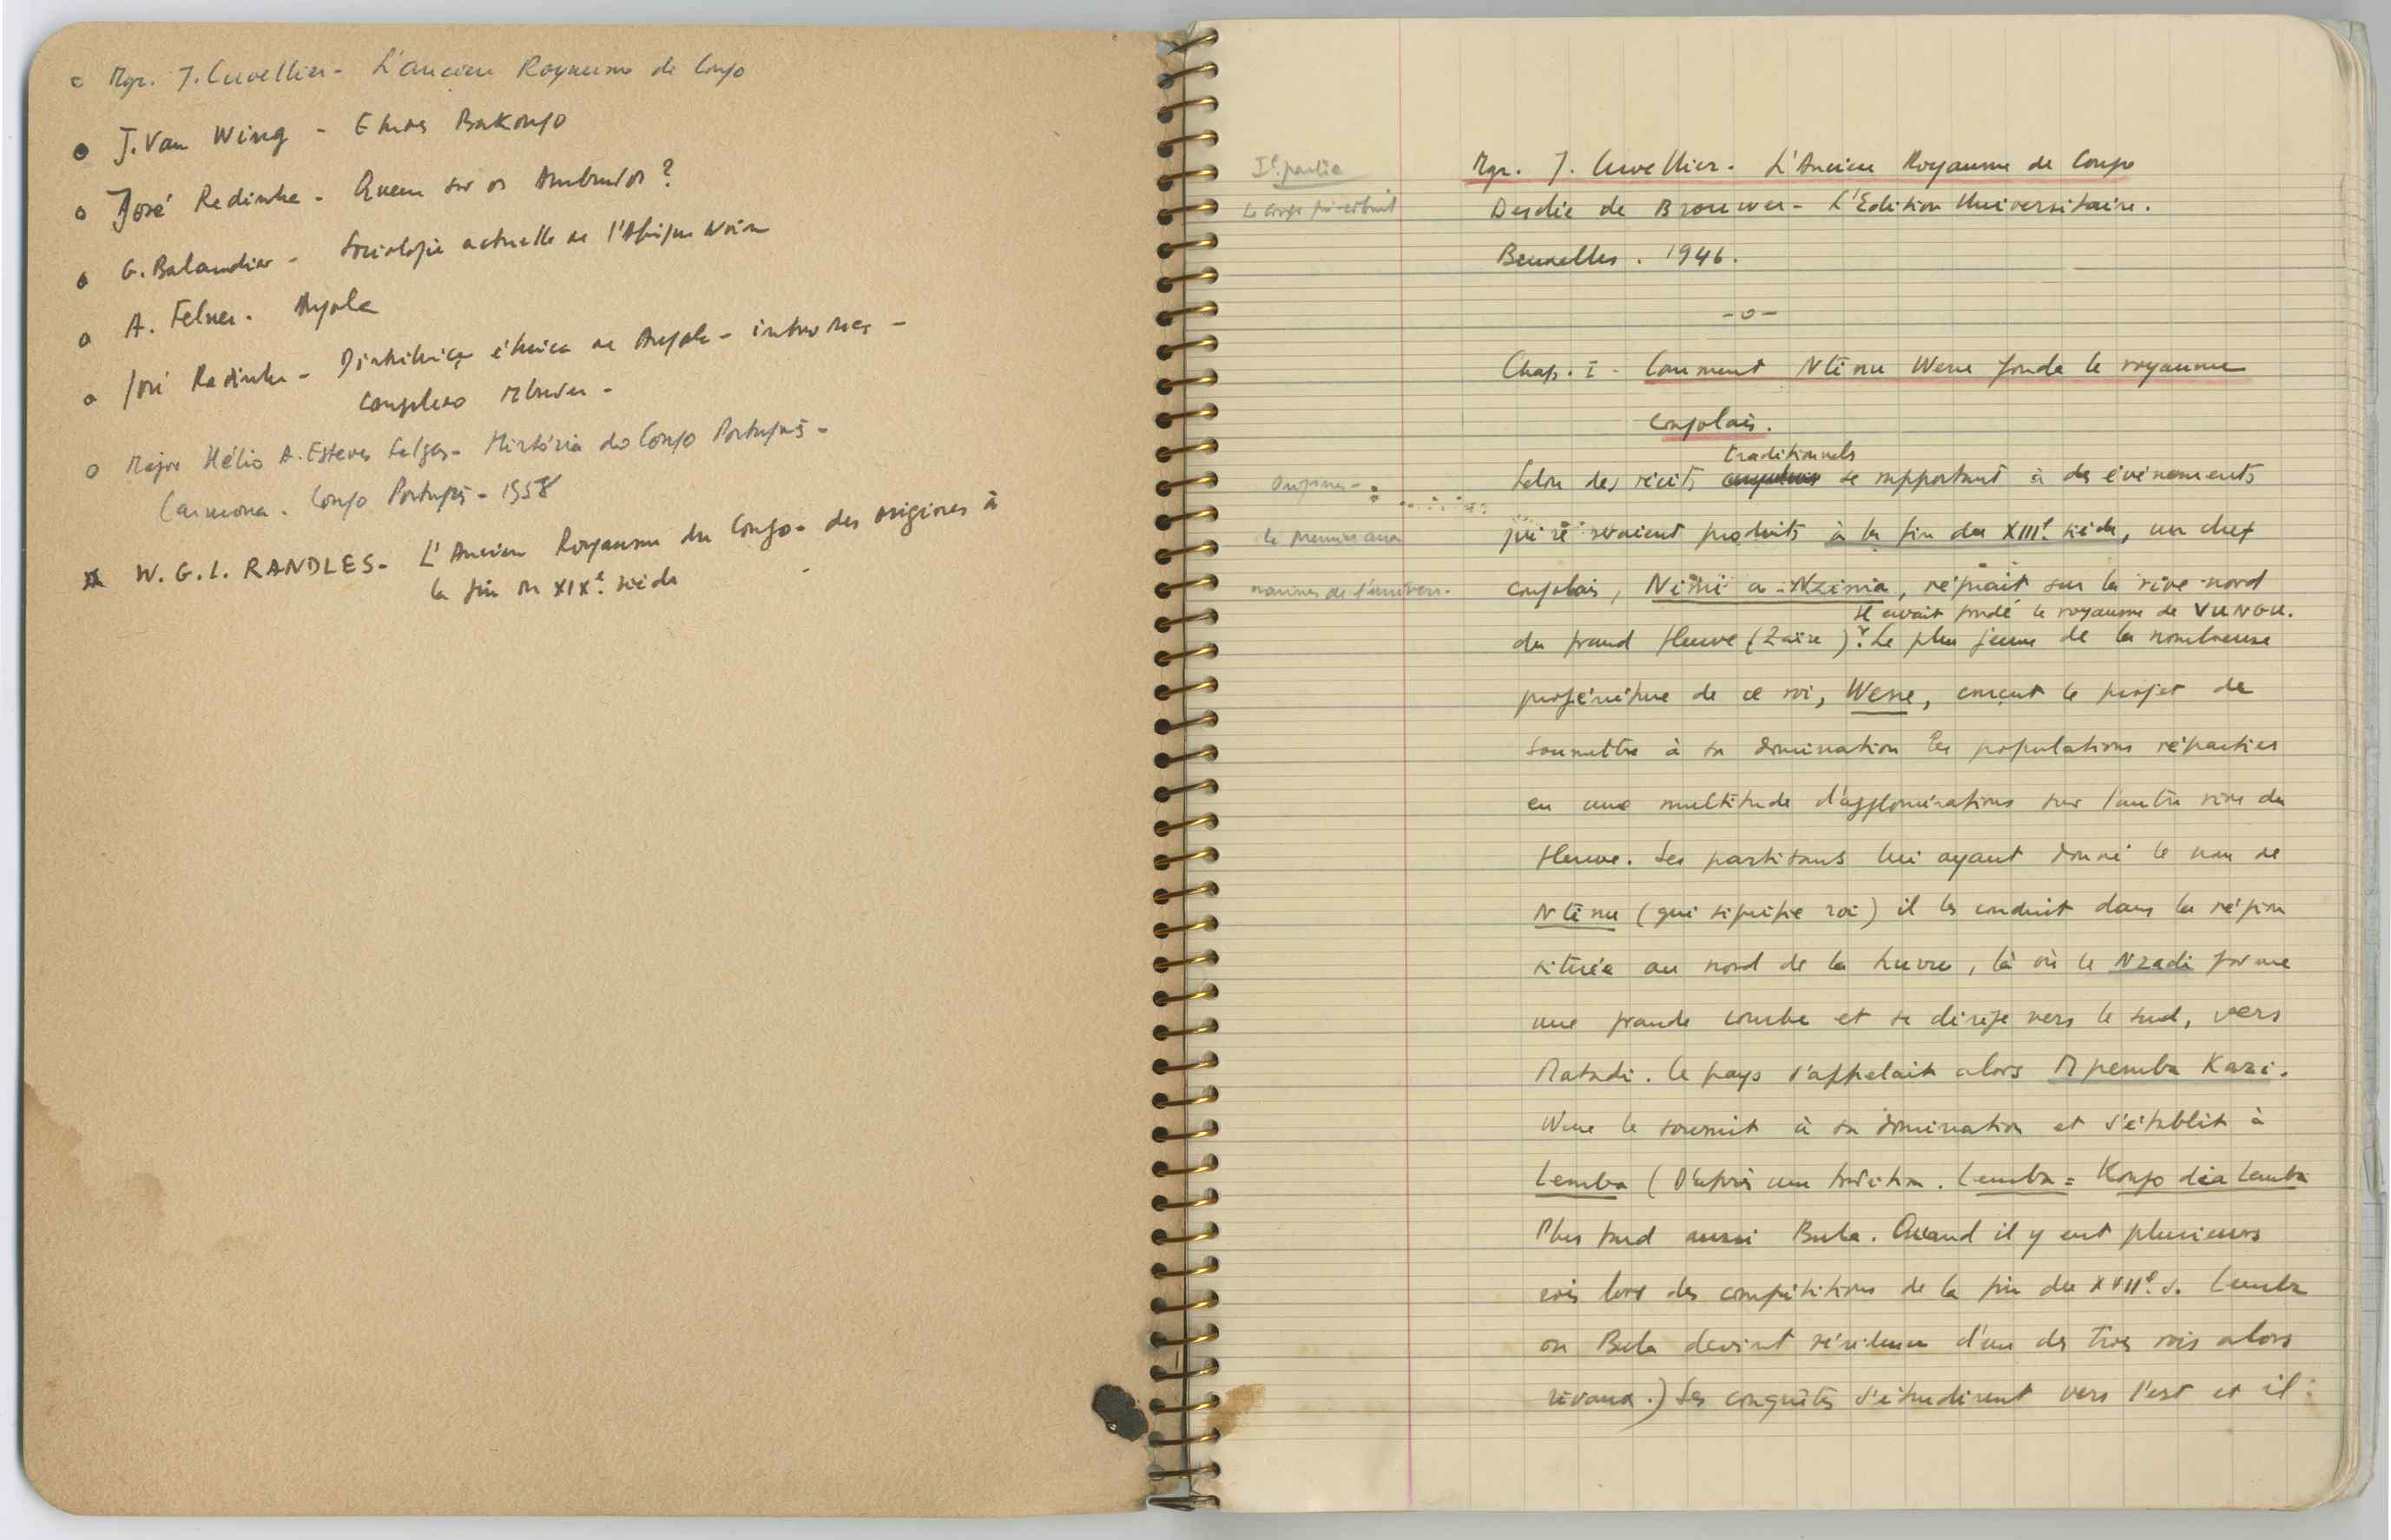 Mgr. J. Cuvellier - L'ancien Royaume de Congo
J. Van Wing - Etudes Bakongo
José Redinha - Quem são os Ambundos?
G. Balandier - Sociologie actuelle de l'Afrique Noire
A. Felner. Angola
José Redinha - Distribuição étnica de Angola - introdução -
complexo
Major Hélio A. Esteves Felgas - História do Congo Português -
Carmona. Congo Português - 1958
W. G. L. RANDLES - L'Ancien Royaume du Congo - des origines à
la fin du XIXe. siècle
Ie. partie
Mgr. J. Cuvellier. L'Ancien Royaume de Congo
Desclée de Brouwer - L'Edition Universitaire.
Bruxelles. 1946.
-o-
Chap. I - Comment Ntinu Wene fonda le royaume
congolais.
traditionnels
Origines -
Selon des récits se rapportant à des événements
le premier
qui se seraient produits à la fin du XIIIe. siècle, un chef
congolais, Nimi a Nzima, régnait sur la rive nord
Il avait fondé le royaume de VUNGU.
du grand fleuve (Zaïre). Le plus jeune de la nombreuse
progéniture de ce roi, Wene, conçut le projet de
soumettre à sa domination les populations réparties
en une multitude d'agglomérations sur l'autre rive du
fleuve. Ses partisans lui ayant donné le nom de
Ntinu (qui signifie roi) il les conduit dans la région
située au nord de la Luvu, là où le Nzadi forme
une grande courbe et se dirige vers le sud, vers
Matadi. Ce pays s'appelait alors Mpemba Kazi.
Wene le soumit à sa domination et s'établit à
Lemba (D'après une tradition. Lemba = Kongo dia Lemba
Plus tard aussi Bula. Quand il y eut plusieurs
rois lors des compétitions de la fin du XVIIe. s. Lemba
ou Bula devint résidence d'un des trois rois alors
rivaux.) Ses conquêtes s'étendirent vers l'est et il